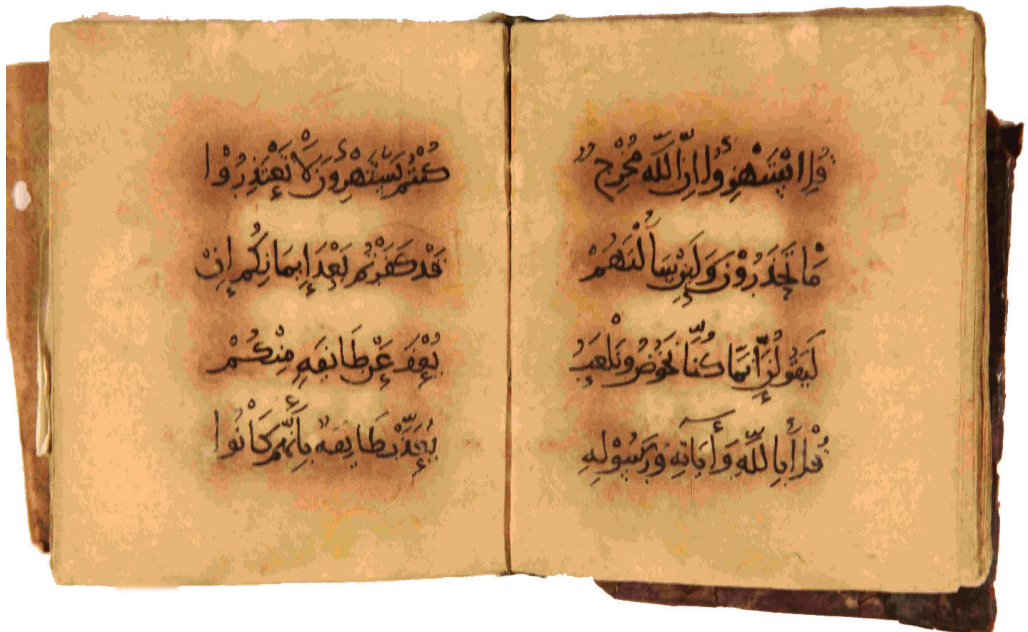 قُلِ ٱسْتَهْزِءُوا إِنَّ ٱللَّهَ مُخْرِجٌ
مَّا تَحْذَرُوْنَ وَلَئِنْ سَأَلْتَهُمْ
لَيَقُولُنَّ إِنَّمَا كُنَّا نَخُوْضُ وَنَلْعَبُ
قُلْ أَبِاللَّهِ وَأٓيَاتِهِ وَرَسُوْلِهِ
كُنْتُمْ تَسْتَهْزِءُوْنَ لَا تَعْتَذِرُوْا
قَدْ كَفَرْتُمْ بَعْدَ إِيمَانِكُمْ إِنْ
يُعْفَ عَنْ طَائِفَةٍ مِنْكُمْ
يُعَذَّبْ طَائِفَةٌ بِأَنَّهُمْ كَانُوا